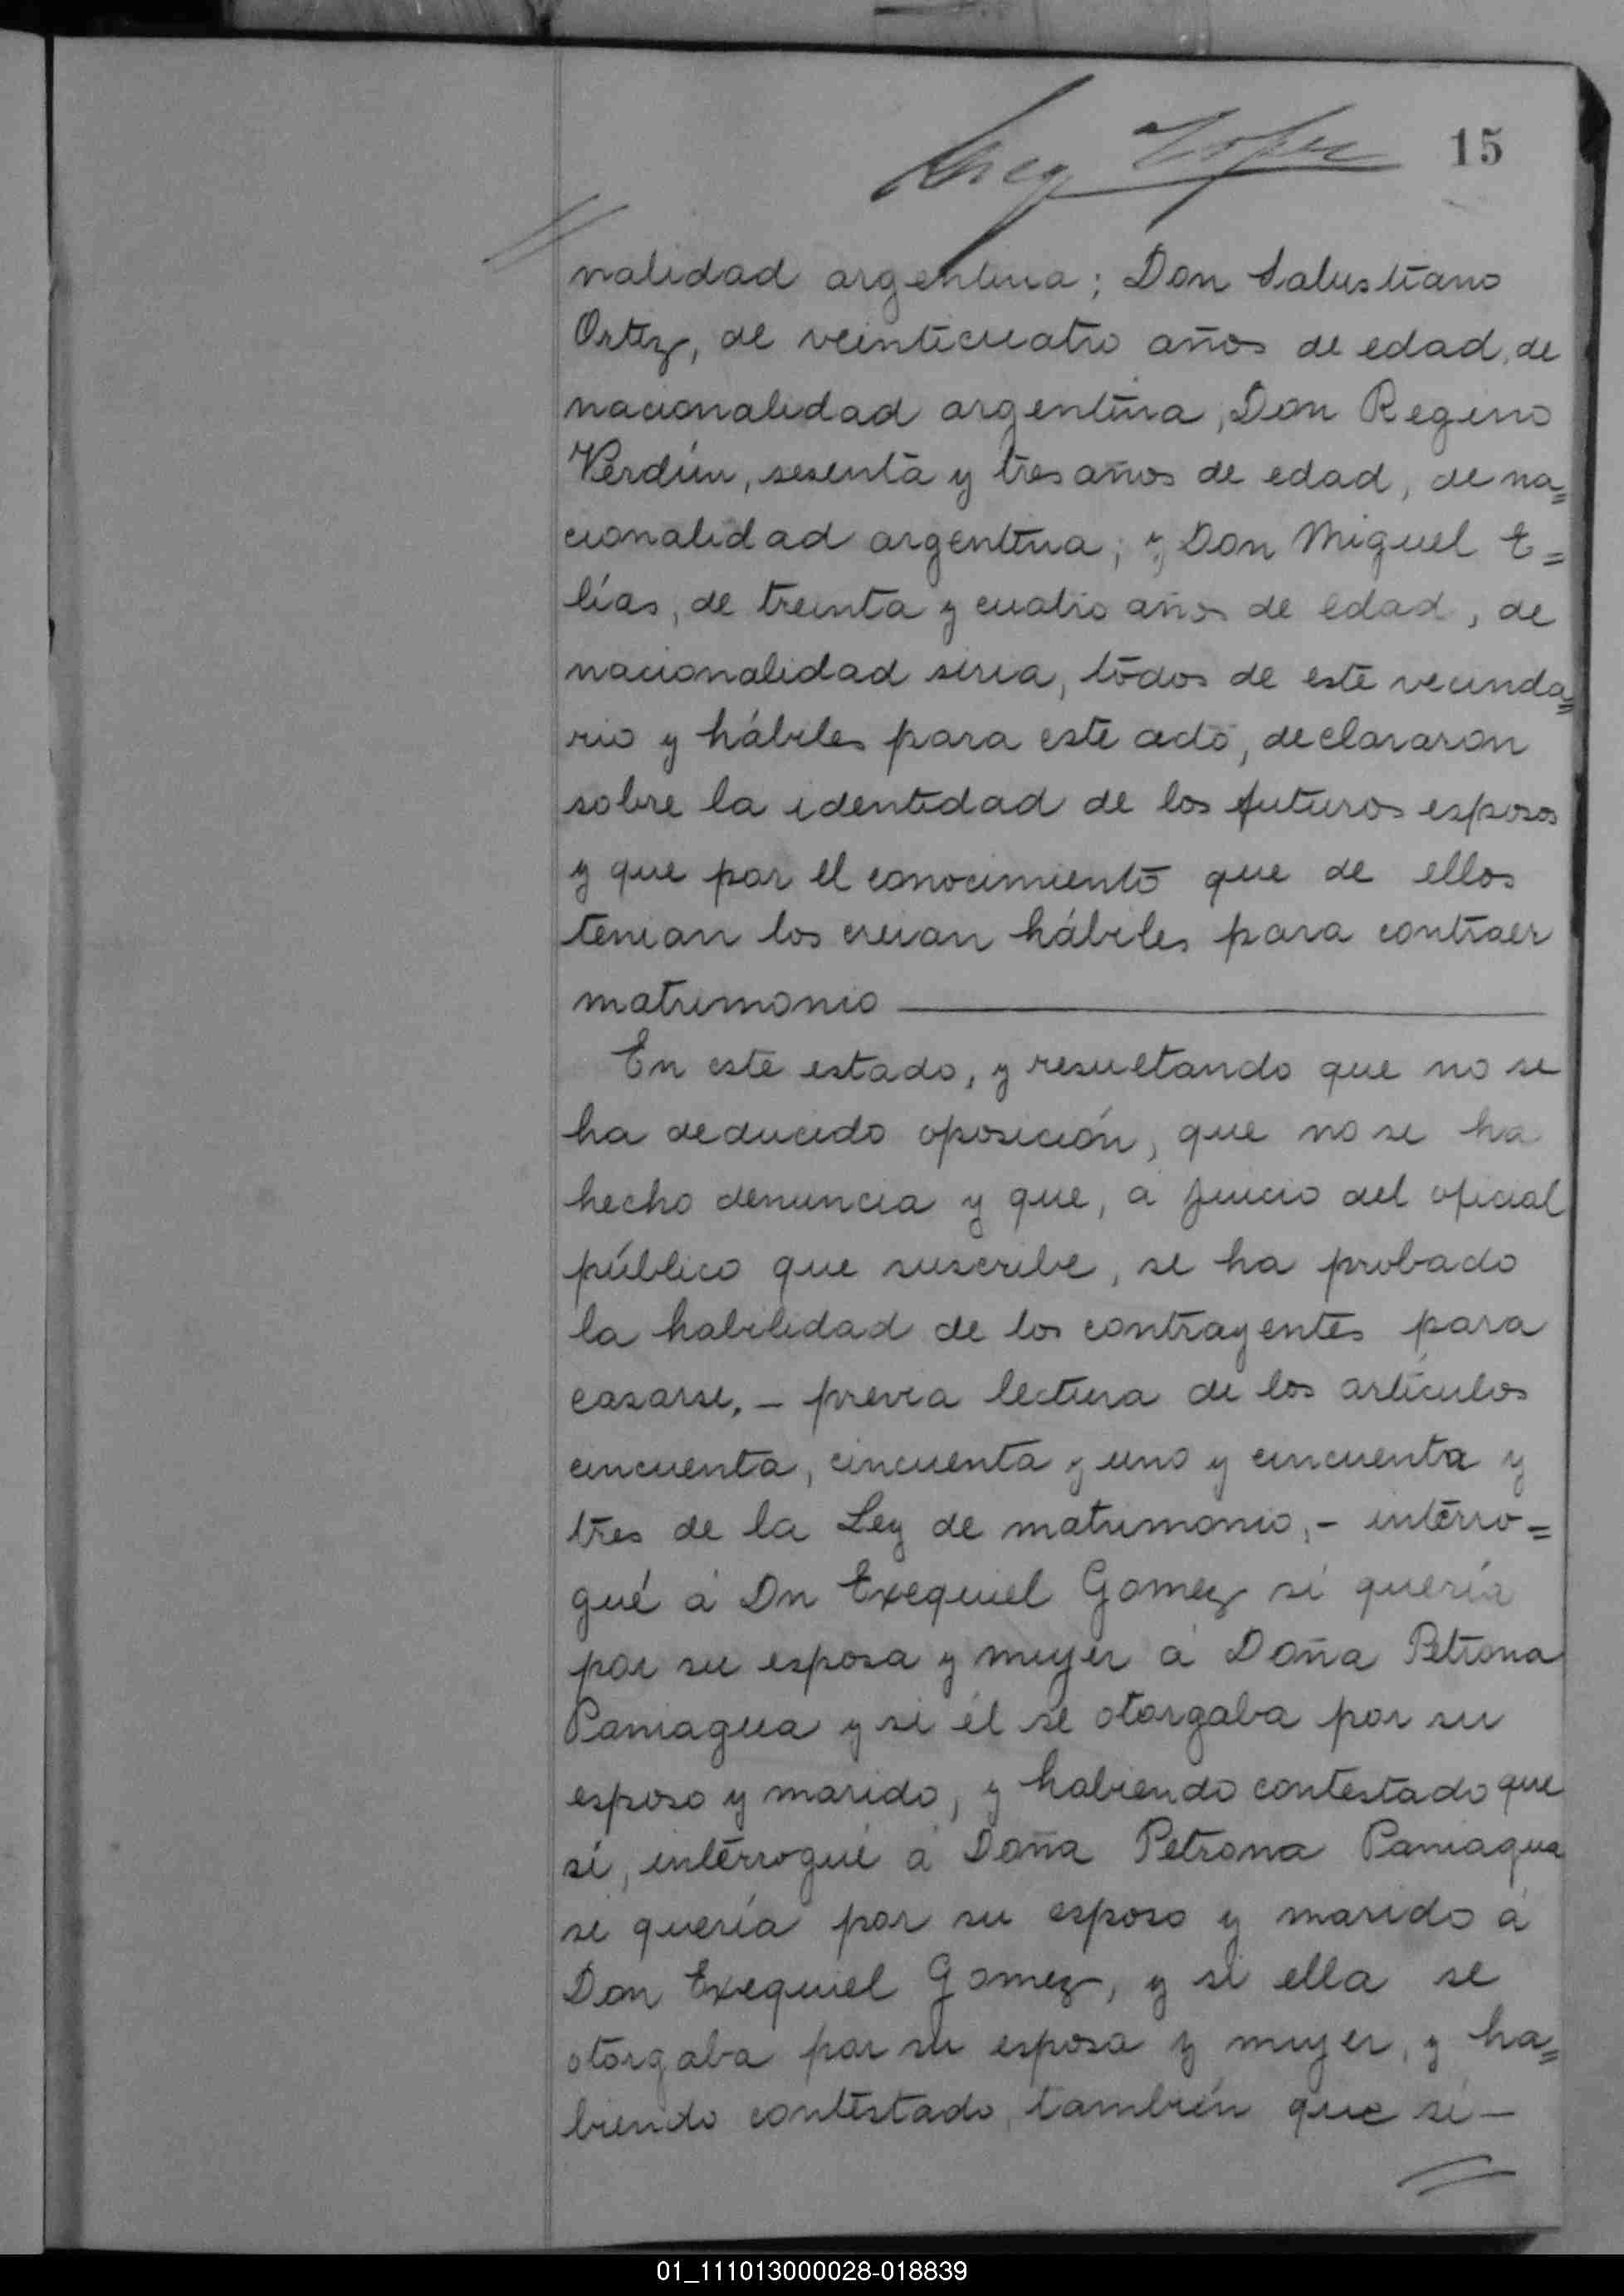 15
nalidad argentina; Don Salustiano
Ortiz, de veinticuatro años de edad, de
nacionalidad argentina, Don Regino
Verdún, sesenta y tres años de edad, de na=
cionalidad argentina; y, Don Miguel E=
lías, de treinta y cuatro años de edad, de
nacionalidad siria, todos de este vecinda=
rio y hábiles para este acto, declararon
sobre la identidad de los futuros esposos
y que por el conocimiento que de ellos
tenian los creian hábiles para contraer
matrimonio
En este estado, y resultando que no se
ha deducido oposición, que no se ha
hecho denuncia y que, a juicio del oficial
público que suscribe, se ha probado
la habilidad de los contrayentes para
casarse, - previa lectura de los artículos
cincuenta, cincuenta y uno y cincuenta y
tres de la Ley de matrimonio, - interro=
gué á Dn Exequiel Gomez si quería
por su esposa y mujer á Doña Petrona
Paniagua y si él se otorgaba por su
esposo y marido, y habiendo contestado que
sí, interrogué á Doña Petrona Paniagua
si quería por su esposo y marido á
Don Exequiel Gomez, y si ella se
otorgaba por su esposa y mujer, y ha=
biendo contestado, también que sí -
01_111013000028-018839